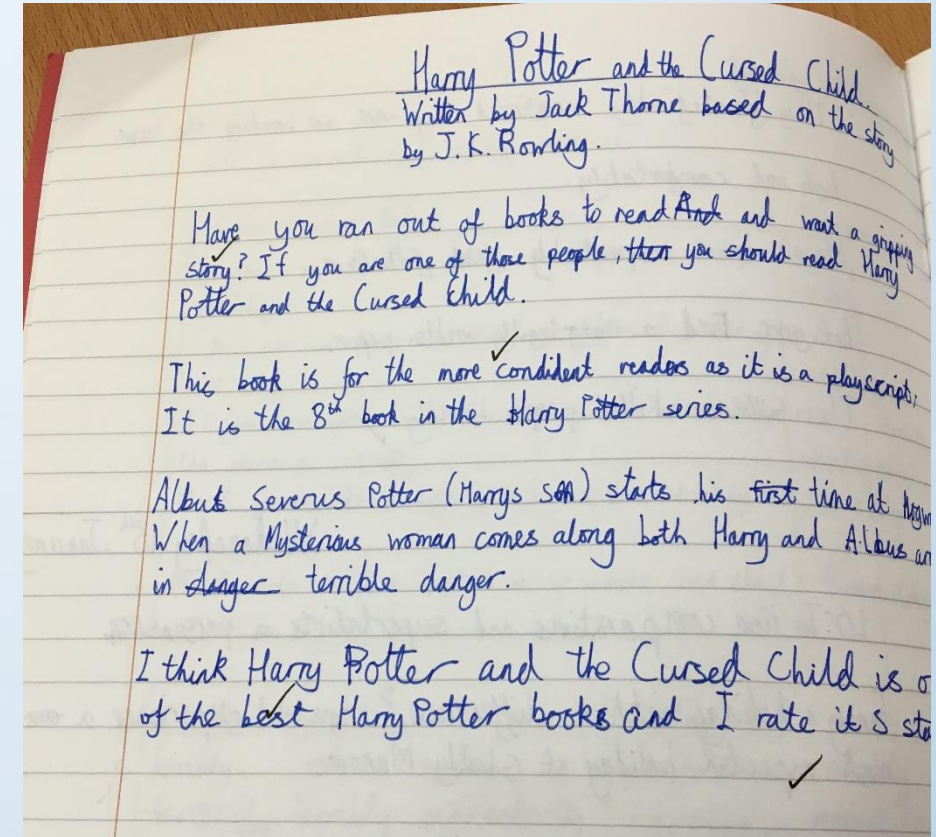 Harry Potter and the Cursed Child.
Written by Jack Thorne based on the story
by J.K. Rowling.
Have you ran out of books to read And and want a gripping
story? If you are one of those people, then you should read Harry
Potter and the Cursed Child.
This book is for the more condident readers as it is a playscript.
It is the 8th book in the Harry Potter series.
Albus Severus Potter (Harrys son) starts his first time at Hogw
When a Mysterious woman comes along both Harry and Albus ar
in danger terrible danger.
I think Harry Potter and the Cursed Child is o
of the best Harry Potter books and I rate it 5 sta